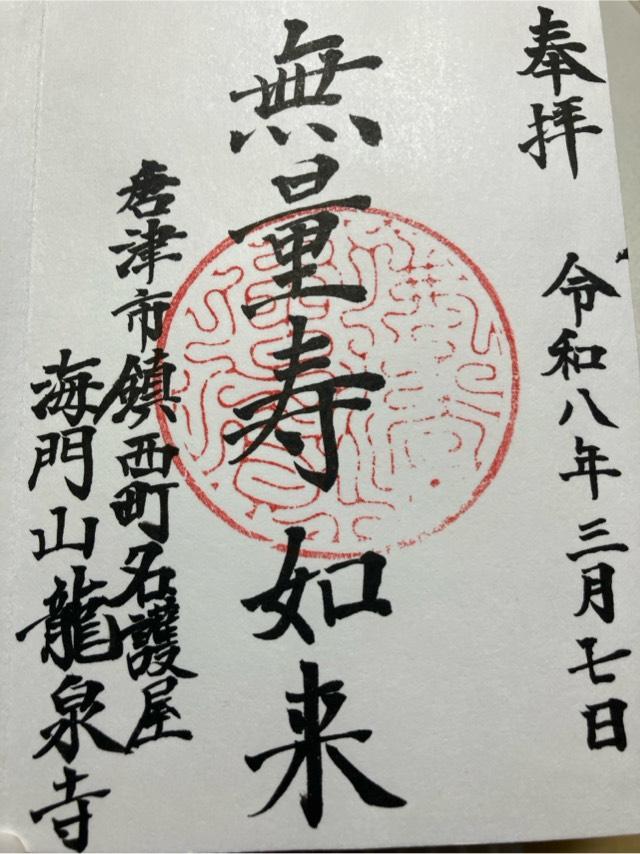 奉拝
令和八年三月七日
無量寿如来
唐津市鎮西町名護屋
海門山龍泉寺